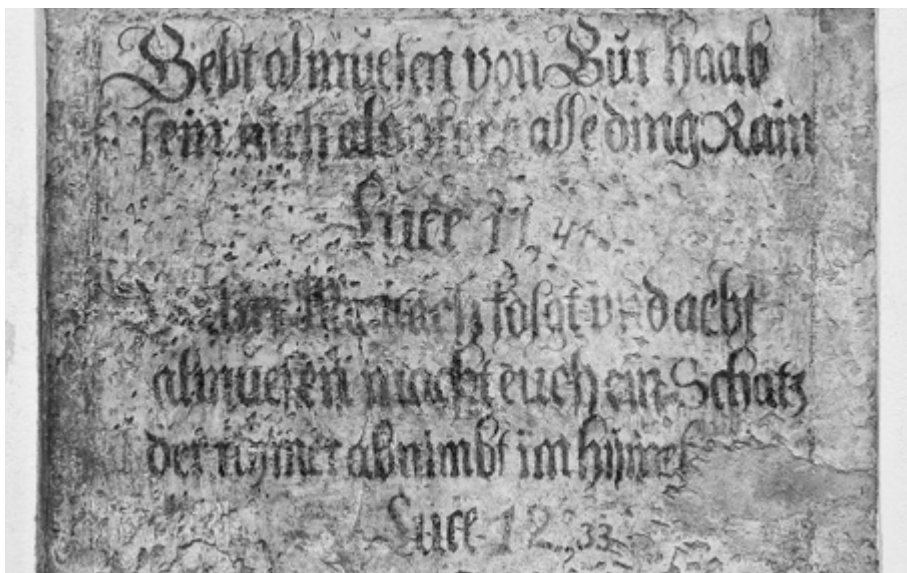 Gebt almuesen von Eur haab
sein euch als alle ding Rain
Luce 11, 41.
folgt und gebt
almuesen macht euch ein Schatz
der nymer abnimbt im hymel
Luce 12, 33